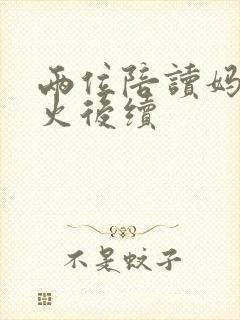 兩位陪讀媽
火後續
不是蚊子